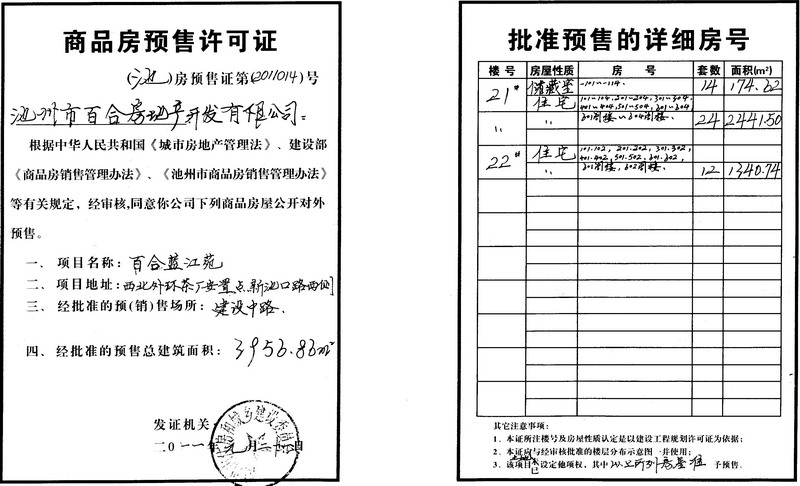 商品房预售许可证
(池)房预售证第(2011014)号
池州市百合房地产开发有限公司:
根据中华人民共和国《城市房地产管理法》、建设部
《商品房销售管理办法》、《池州市商品房销售管理办法》
等有关规定，经审核,同意你公司下列商品房屋公开对外
预售。
一、项目名称：百合蓝江苑
二、项目地址：西北外环茶厂安置点新池口路西侧
三、经批准的预(销)售场所：建设中路、
四、经批准的预售总建筑面积：3956.86m²
发证机关
二〇一一年元月二十日
批准预售的详细房号
楼号 房屋性质 房号 套数 面积(m²)
21# 储藏室 -101~-114. 14 174.62
住宅 101-104,201-204,301-304,
401-404,501-504,601-604
〃 601附楼~604附楼、 24 2441.50
22# 住宅 101.102, 201.202, 301.302,
401.402, 501.502, 601.602,
〃 601附楼、602附楼、 12 1340.74
其它注意事项：
1．本证所注楼号及房屋性质认定是以建设工程规划许可证为依据；
2．本证应与经审核批准的楼层分布示意图一并使用；
3．该项目 未已 设定他项权，其中以上所列房屋准予预售．